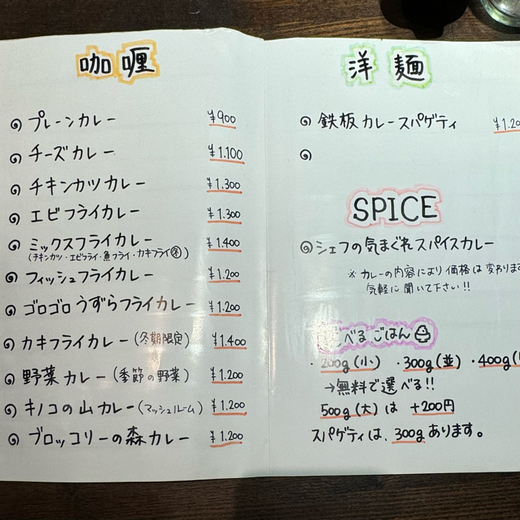 咖喱
プレーンカレー ¥900
チーズカレー ¥1.100
チキンカツカレー ¥1.300
エビフライカレー ¥1.300
ミックスフライカレー ¥1.400
(チキンカツ・エビフライ・魚フライ・カキフライ㊌)
フィッシュフライカレー ¥1.200
ゴロゴロうずらフライカレー ¥1.200
カキフライカレー(冬期限定) ¥1.400
野菜カレー(季節の野菜) ¥1.200
キノコの山カレー(マッシュルーム) ¥1.200
ブロッコリーの森カレー ¥1.200
洋麺
鉄板カレースパゲティ ¥1.20
SPICE
シェフの気まぐれスパイスカレー
※カレーの内容により価格は変わりま
気軽に聞いて下さい!!
べるごはん
・200g(小) ・300g(並) ・400g(
→無料で選べる!!
500g(大)は +200円
スパゲティは、300gあります。